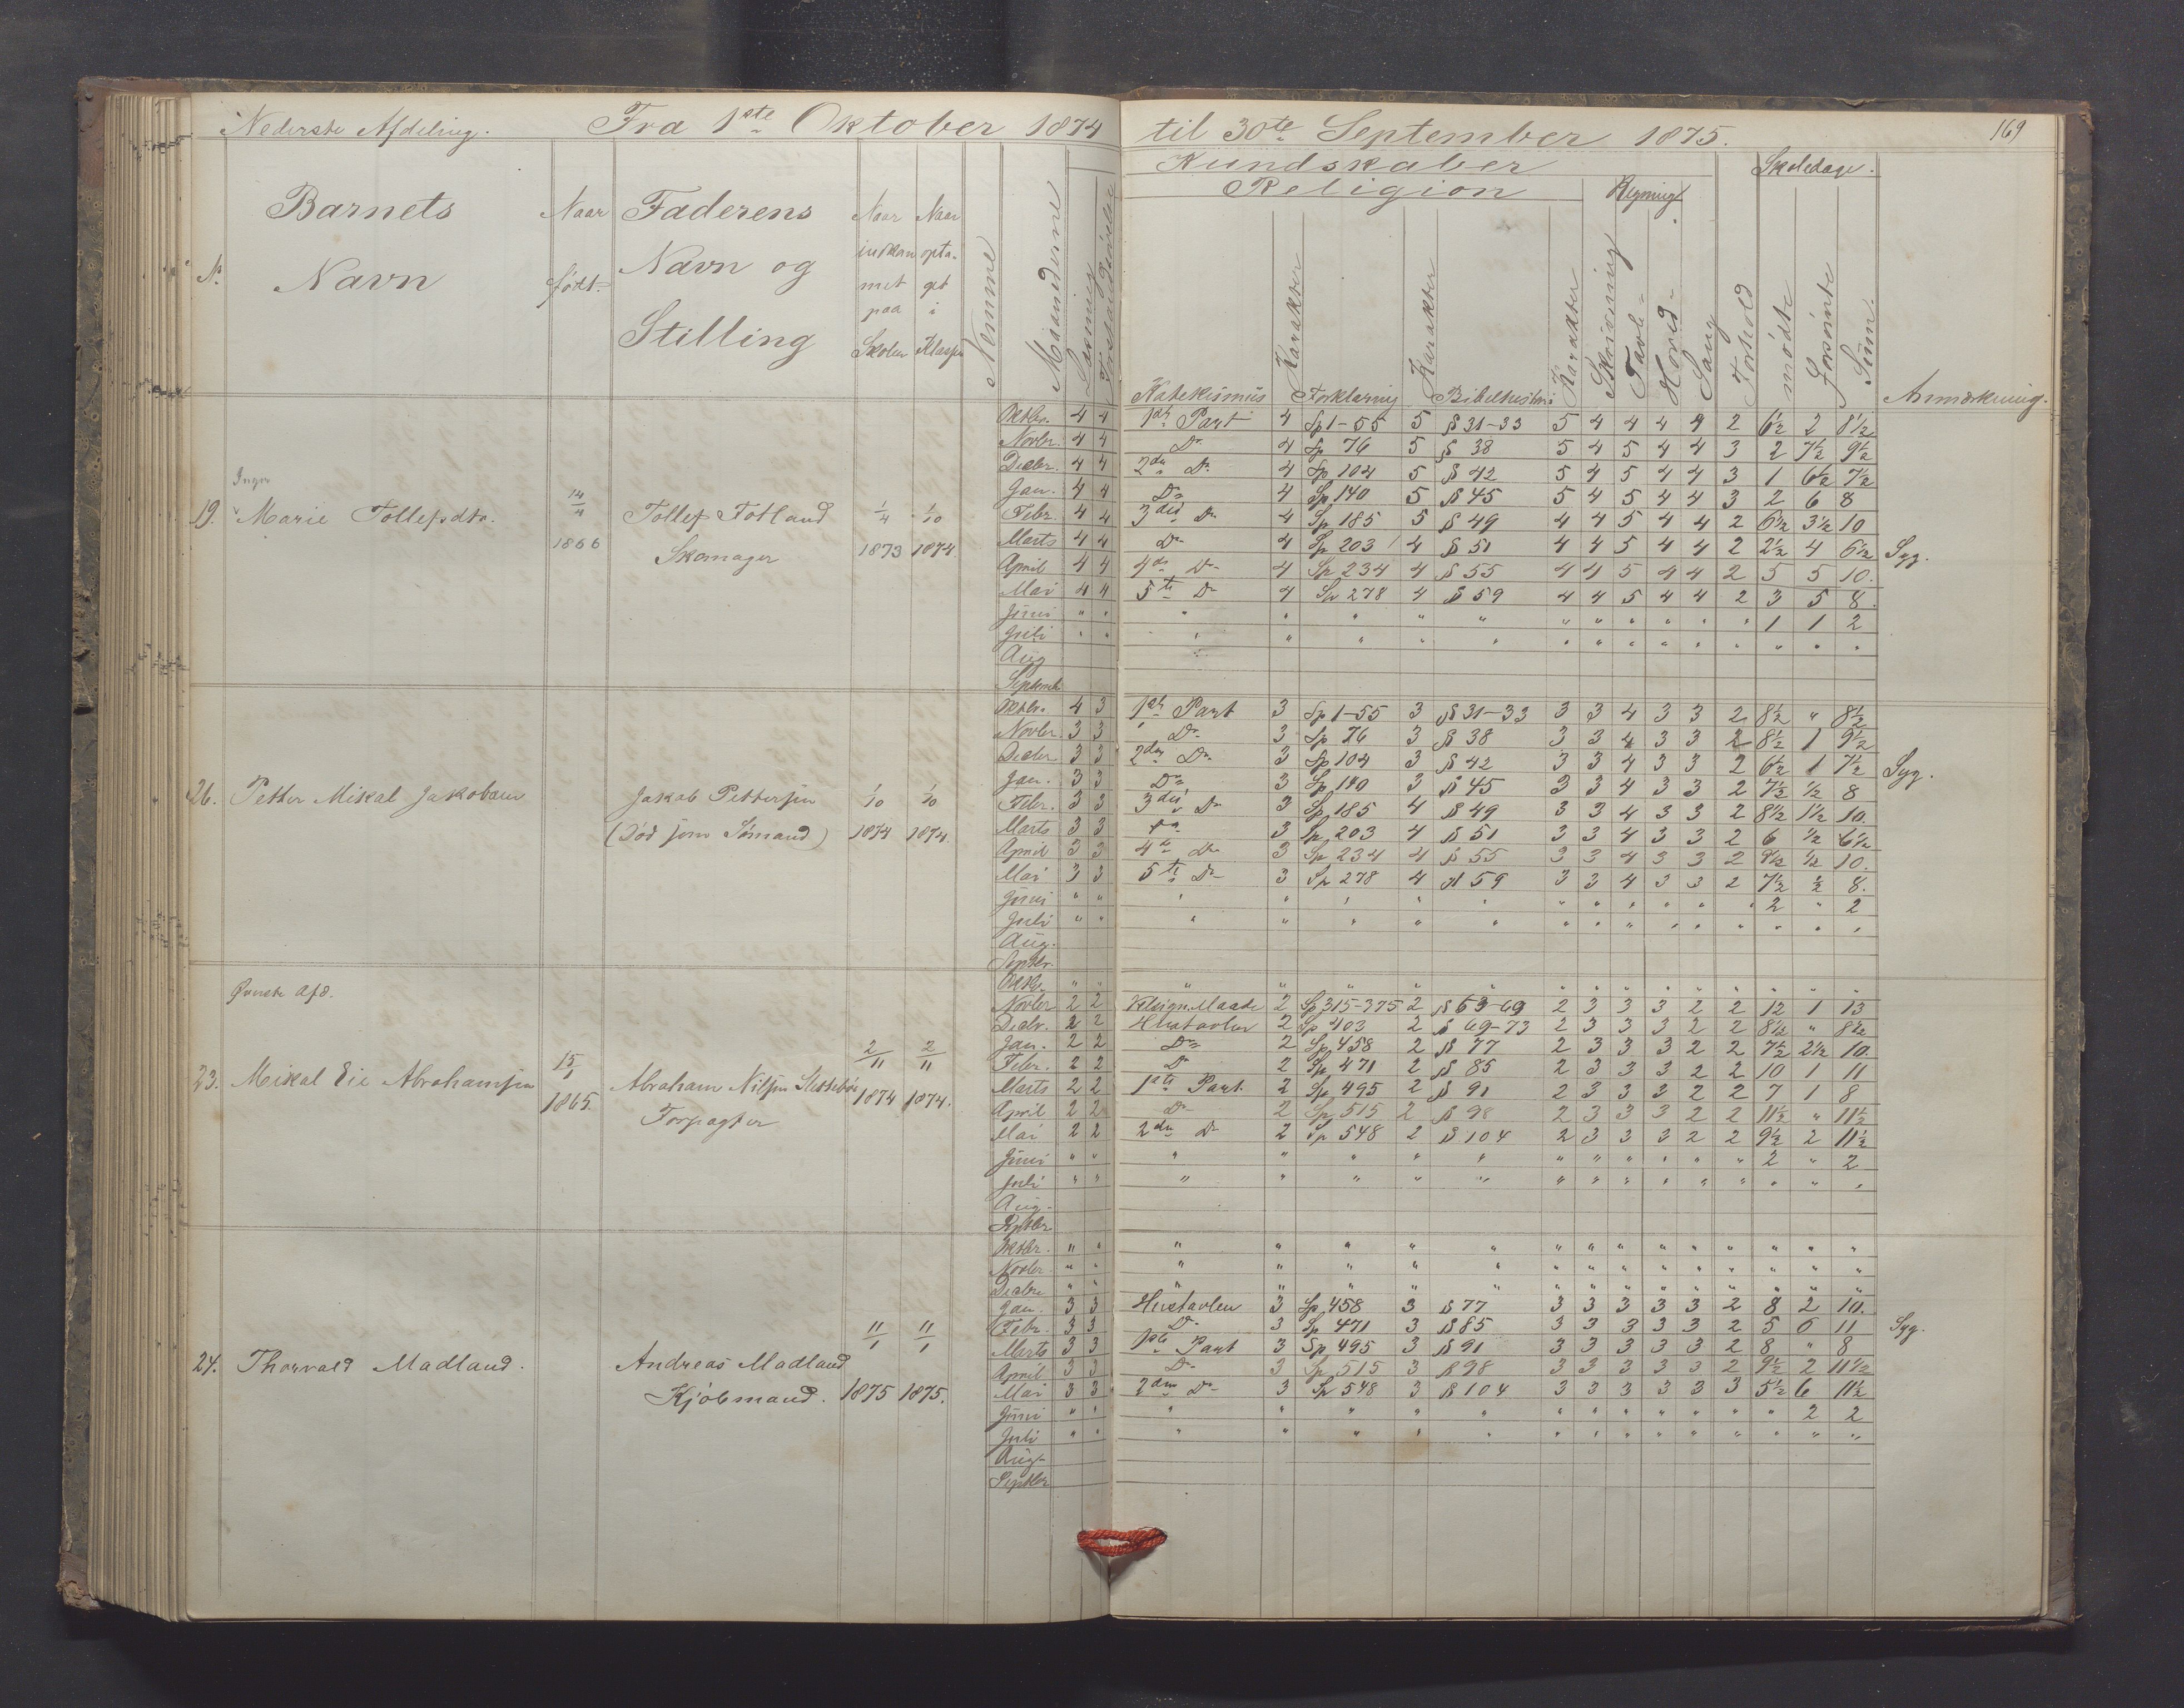 Nederste Afdeling. Fra 1ste Oktober 1874 til 30te September 1875. 169
Kundskaber Skoledage.
Religion Regning
No. Barnets Navn Naar født Faderens Navn og Stilling Naar indkommet paa Skolen Naar optaget i Klassen Nemme Maanederne Læsning Katekismus Karakter Forklaring Karakter Bibelhistorie Karakter Skrivning Tavle- Hoved- Sang Forhold mødte forsømte Sum. Anmærkning.
19. Inger Marie Tollefsdtr. 14/4 1866 Tollef Totland Skomager 1/4 1873 1/10 1874.
Oktbr. 4 4 1ste Part 4 Sp 1-55 5 § 31-33 5 4 4 4 4 2 6½ 2 8½
Novbr. 4 4 Do 4 Sp 76 5 § 38 5 4 5 4 4 3 2 7½ 9½
Decbr. 4 4 2den Do 4 Sp 104 5 § 42 5 4 5 4 4 3 1 6½ 7½
Jan. 4 4 Do 4 Sp 140 5 § 45 5 4 5 4 4 3 2 6 8
Febr. 4 4 3die Do 4 Sp 185 5 § 49 4 4 5 4 4 2 6½ 3½ 10
Marts 4 4 Do 4 Sp 203 4 § 51 4 4 5 4 4 2 2½ 4 6½ Syg.
April 4 4 4de Do 4 Sp 234 4 § 55 4 4 5 4 4 2 5 5 10.
Mai 4 4 5te Do 4 Sp 278 4 § 59 4 4 5 4 4 2 3 5 8.
Juni " " " " " " " " " " " " " 1 1 2
Juli " " " " " " " " " " " " " " " "
Aug
Septemb
26. Petter Mikal Jakobsen Jakob Pettersen (Død som Sømand) 1/10 1874 1/10 1874.
Oktbr. 4 3 1ste Part 3 Sp 1-55 3 § 31-33 3 3 4 3 3 2 8½ " 8½
Novbr. 3 3 Do 3 Sp 76 3 § 38 3 3 4 3 3 2 8½ 1 9½
Decbr 3 3 2den Do 3 Sp 104 3 § 42 3 3 4 3 3 2 6½ 1 7½ Syg.
Jan. 3 3 Do 3 Sp 140 3 § 45 3 3 4 3 3 2 7½ ½ 8
Febr. 3 3 3die Do 3 Sp 185 4 § 49 3 3 4 3 3 2 8½ 1½ 10.
Marts 3 3 Do 3 Sp 203 4 § 51 3 3 4 3 3 2 6 ½ 6½
April 3 3 4de Do 3 Sp 234 4 § 55 3 3 4 3 3 2 9½ ½ 10.
Mai 3 3 5te Do 3 Sp 278 4 § 59 3 3 4 3 3 2 7½ ½ 8.
Juni " " " " " " " " " " " " " 2 " 2
Juli " " " " " " " " " " " " " " " "
Aug.
Septbr.
Øverste Afd.
23. Mikal Eie Abrahamsen 15/1 1865. Abraham Nilsen Forpagter 2/11 1874 2/11 1874.
Oktbr " " " " " " " " " " " " " " " "
Novbr 2 2 2 Sp 315-375 2 § 63-69 2 3 3 3 2 2 12 1 13
Decbr. 2 2 Hustavlen 2 Sp 403 2 § 69-73 2 3 3 3 2 2 8½ " 8½
Jan. 2 2 Do 2 Sp 458 2 § 77 2 3 3 3 2 2 7½ 2½ 10.
Febr. 2 2 Do 2 Sp 471 2 § 85 2 3 3 3 2 2 10 1 11
Marts 2 2 1ste Part. 2 Sp 495 2 § 91 2 3 3 3 2 2 7 1 8
April 2 2 Do 2 Sp 515 2 § 98 2 3 3 3 2 2 11½ " 11½
Mai 2 2 2den Do 2 Sp 548 2 § 104 2 3 3 3 2 2 9½ 2 11½
Juni " " " " " " " " " " " " " 2 " 2
Juli " " " " " " " " " " " " " " " "
Aug.
Septbr
24. Thorvald Madland. Andreas Madland Kjøbmand. 11/1 1875 11/1 1875.
Oktbr. " " " " " " " " " " " " " " " "
Novbr. " " " " " " " " " " " " " " " "
Decbr " " " " " " " " " " " " " " " "
Jan. 3 3 Hustavlen 3 Sp 458 3 § 77 3 3 3 3 3 2 8 2 10.
Febr. 3 3 Do 3 Sp 471 3 § 85 3 3 3 3 3 2 5 6 11 Syg.
Marts 3 3 1ste Part 3 Sp 495 3 § 91 3 3 3 3 3 2 8 " 8
April 3 3 Do 3 Sp 515 3 § 98 3 3 3 3 3 2 9½ 2 11½
Mai 3 3 2den Do 3 Sp 548 3 § 104 3 3 3 3 3 3 5½ 6 11½
Juni " " " " " " " " " " " " " " 2 2
Juli " " " " " " " " " " " " " " " "
Aug.
Septbr